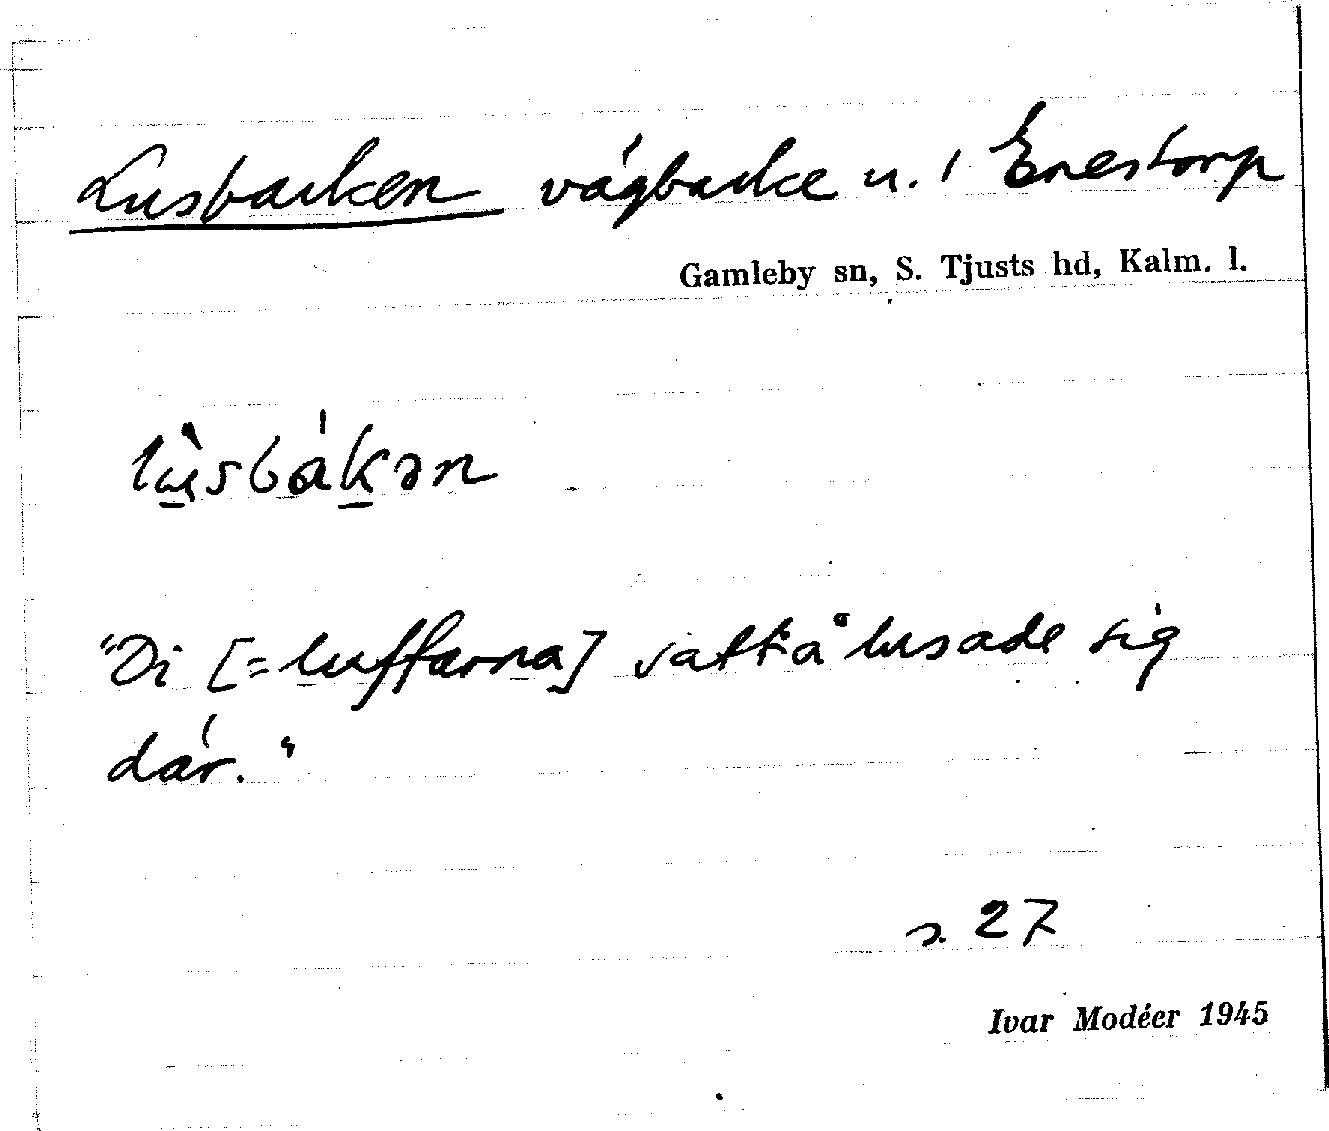 Lusbacken vägbacke u. / Enestorp
Gamleby sn, S. Tjusts hd, Kalm. l.
lùsbákən
"Di [= luffarna] satt å lusade sig
där."
s. 27
Ivar Modéer 1945